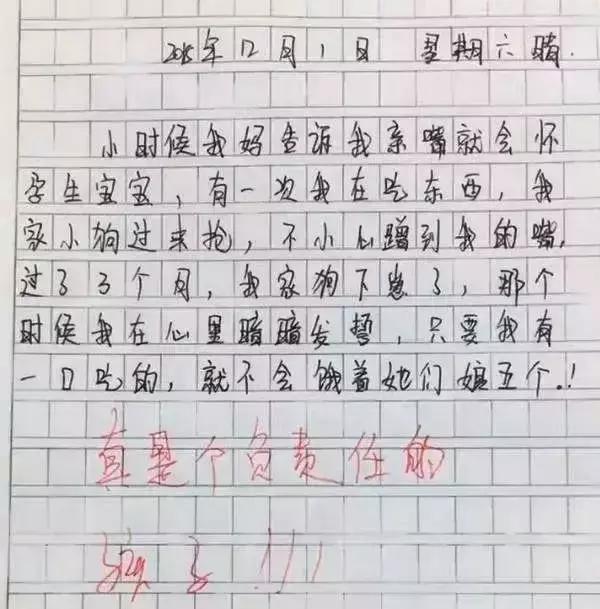 2018年12月1日 星期六晴.
小时候我妈告诉我亲嘴就会怀
孕生宝宝，有一次我在吃东西，我
家小狗过来抢，不小心蹭到我的嘴，
过了3个月，我家狗下崽了，那个
时候我在心里暗暗发誓，只要我有
一口吃的，就不会饿着她们娘五个.!
真是个负责任的
孩子!!!